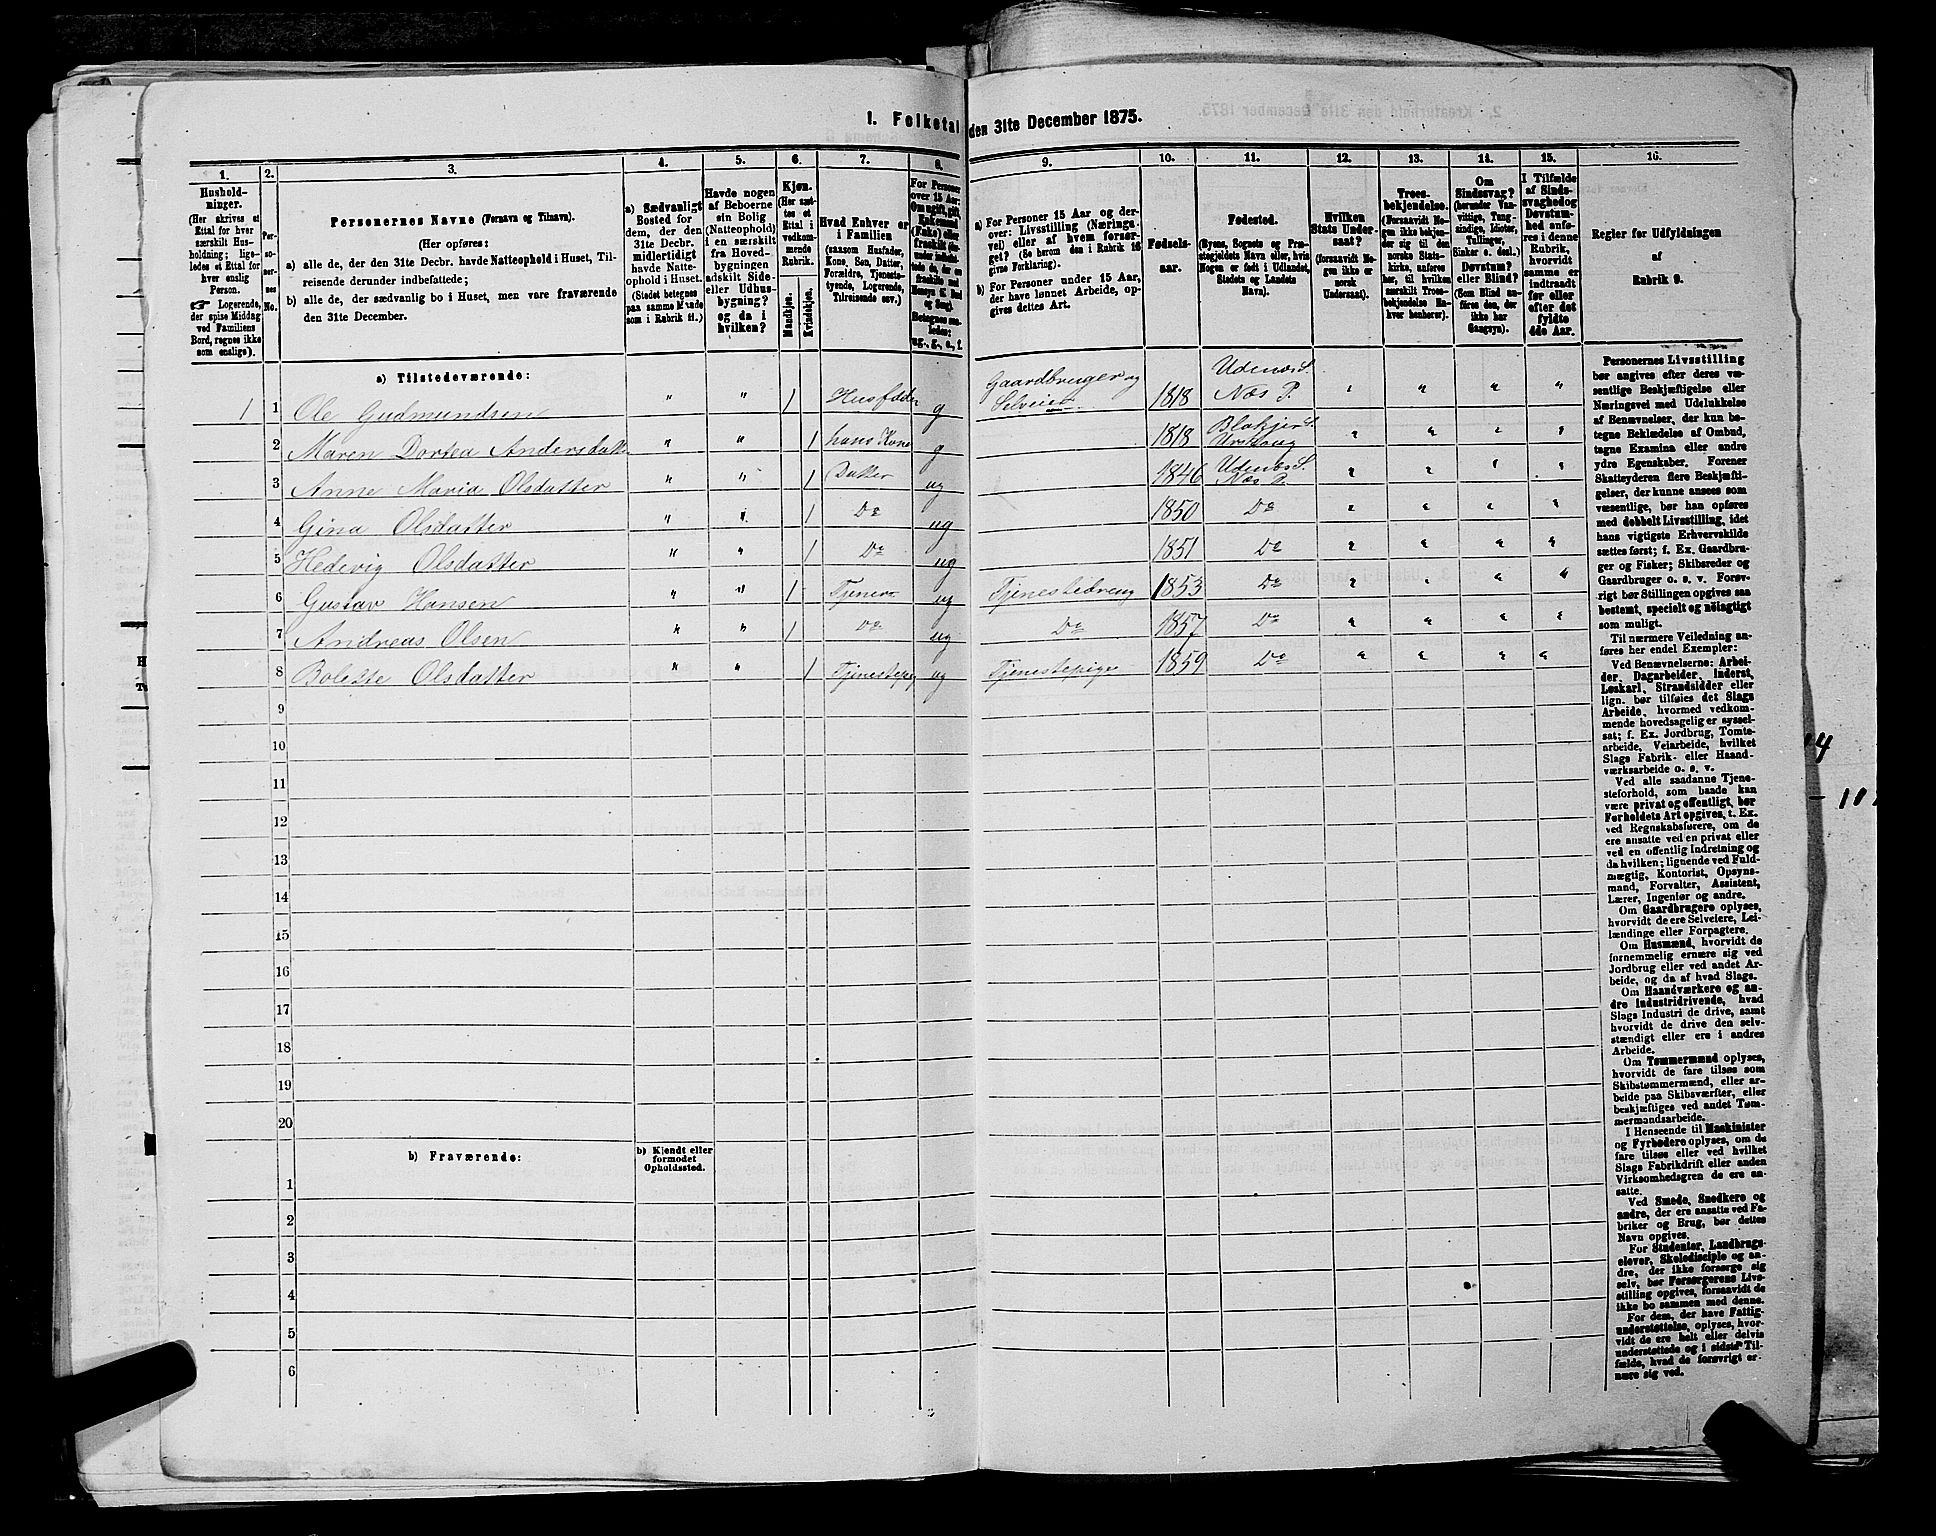 1. Folketal den 31te December 1875.
1. 2. 3. 4. 5. 6. 7. 8. 9. 10. 11. 12. 13. 14. 15. 16.
Husholdninger.
(Her skrives et Ettal for hver særskilt Husholdning; ligeledes et Ettal for hver enslig Person.
☛ Logerende, der spise Middag ved Familiens Bord, regnes ikke som enslige).
Personernes No.
Personernes Navne (Fornavn og Tilnavn).
(Her opføres:
a) alle de, der den 31te Decbr. havde Natteophold i Huset, Tilreisende derunder indbefattede;
b) alle de, der sædvanlig bo i Huset, men vare fraværende den 31te December.
a) Sædvanligt Bosted for dem, der den 31te Decbr. midlertidigt havde Natteophold i Huset.
(Stedet betegnes paa samme Maade som i Rubrik 11.)
Havde nogen af Beboerne sin Bolig (Natteophold) i en særskilt fra Hovedbygningen adskilt Side- eller Udhusbygning? og da i hvilken?
Kjøn.
(Her sættes et Ettal i vedkommende Rubrik.
Mandkjøn.
Kvindekjøn.
Hvad Enhver er i Familien
(saasom Husfader, Kone, Søn, Datter, Forældre, Tjenestetyende, Logerende, Tilreisende osv.)
For Personer over 15 Aar:
ug., g., e., f.
a) For Personer 15 Aar og derover: Livsstilling (Næringsvei) eller af hvem forsørget? (Se herom den i Rubrik 16 givne Forklaring).
b) For Personer under 15 Aar, der have lønnet Arbeide, opgives dettes Art.
Fødselsaar.
Fødested.
(Byens, Sognets og Præstegjeldets Navn eller, hvis Nogen er født i Udlandet, Stedets og Landets Navn).
Hvilken Stats Undersaat?
(forsaavidt Nogen ikke er norsk Undersaat).
Troesbekjendelse.
(Forsaavidt Nogen ikke bekjender sig til den norske Statskirke, anføres her, til hvilken særskilt Troesbekjendelse Enhver henhører).
Om Sindssvag?
(herunder Vanvittige, Tungsindige, Idioter, Tullinger, Sinker o. desl.).
Døvstum? eller Blind?
(Som Blind anføres den, der ikke har Gangsyn).
I Tilfælde af Sindssvaghed og Døvstumhed anføres i denne Rubrik, hvorvidt samme er indtraadt før eller efter det fyldte 4de Aar.
Regler for Udfyldningen
af
Rubrik 9.
a) Tilstedeværende:
1 1 Ole Gudmundsen " " 1 Husfader g Gaardbruger og Selveier 1818 Udenæs S. Næs P. " " " "
2 Maren Dortea Andersdatt. " " 1 hans Kone g 1818 Blakjer S. Urskoug " " " "
3 Anne Maria Olsdatter " " 1 Datter ug 1846 Udenæs S. Næs P. " " " "
4 Gina Olsdatter " " 1 Do ug 1850 Do " " " "
5 Hedevig Olsdatter " " 1 Do ug 1851 Do " " " "
6 Gustav Hansen " " 1 Tjener ug Tjenestedreng 1853 Do " " " "
7 Andreas Olsen " " 1 Do ug Do 1857 Do " " " "
8 Bolette Olsdatter " " 1 Tjenestepig ug Tjenestepige 1859 Do " " " "
9
10
11
12
13
14
15
16
17
18
19
20
b) Fraværende:
b) Kjendt eller formodet Opholdssted.
1
2
3
4
5
6
Personernes Livsstilling
bør angives efter deres væ-
sentlige Beskjæftigelse eller
Næringsvei med Udelukkelse
af Benævnelser, der kun be-
tegne Beklædelse af Ombud,
tagne Examina eller andre
ydre Egenskaber. Forener
Skatteyderen flere Beskjæfti-
gelser, der kunne ansees som
væsentlige, bør han opføres
med dobbelt Livsstilling, idet
hans vigtigste Erhvervskilde
sættes først; f. Ex. Gaardbru-
ger og Fisker; Skibsreder og
Gaardbruger o. s. v. Forøv-
rigt bør Stillingen opgives saa
bestemt, specielt og nøiagtigt
som muligt.
Til nærmere Veiledning an-
føres her endel Exempler:
Ved Benævnelserne: Arbei-
der, Dagarbeider, Inderst,
Løskarl, Strandsidder eller
lign. bør tilføies det Slags
Arbeide, hvormed vedkom-
mende hovedsagelig er syssel-
sat; f. Ex. Jordbrug, Tomte-
arbeide, Veiarbeide, hvilket
Slags Fabrik- eller Haand-
værksarbeide o. s. v.
Ved alle saadanne Tjene-
steforhold, som baade kan
være privat og offentligt, bør
Forholdets Art opgives, t. Ex.
ved Regnskabsførere, om de
ere ansatte ved en privat eller
ved en offentlig Indretning og
da hvilken; lignende ved Fuld-
mægtig, Kontorist, Opsyns-
mand, Forvalter, Assistent,
Lærer, Ingeniør og andre.
Om Gaardbrugere oplyses,
hvorvidt de ere Selveiere, Lei-
lændinge eller Forpagtere.
Om Husmænd, hvorvidt de
fornemmelig ernære sig ved
Jordbrug eller ved andet Ar-
beide, og da af hvad Slags.
Om Haandværkere og an-
dre Industridrivende, hvad
Slags Industri de drive, samt
hvorvidt de drive den selv-
stændigt eller ere i andres
Arbeide.
Om Tømmermænd oplyses,
hvorvidt de fare tilsøs som
Skibstømmermænd, eller ar-
beide paa Skibsværfter, eller
beskjæftiges ved andet Tøm-
mermandsarbeide.
I Henseende til Maskinister
og Fyrbødere oplyses, om de
fare tilsøs eller ved hvilket
Slags Fabrikdrift eller anden
Virksomhedsgren de ere an-
satte.
Ved Smede, Snedkere og
andre, der ere ansatte ved Fa-
briker og Brug, bør dettes
Navn opgives.
For Studenter, Landbrugs-
elever, Skoledisciple og an-
dre, der ikke forsørge sig
selv, bør Forsørgerens Livs-
stilling opgives, forsaavidt de
ikke bo sammen med denne.
For dem, der have Fattig-
understøttelse, oplyses, hvor-
vidt de ere helt eller delvis
understøttede og i sidste Til-
fælde, hvad de forøvrigt er-
nære sig ved.